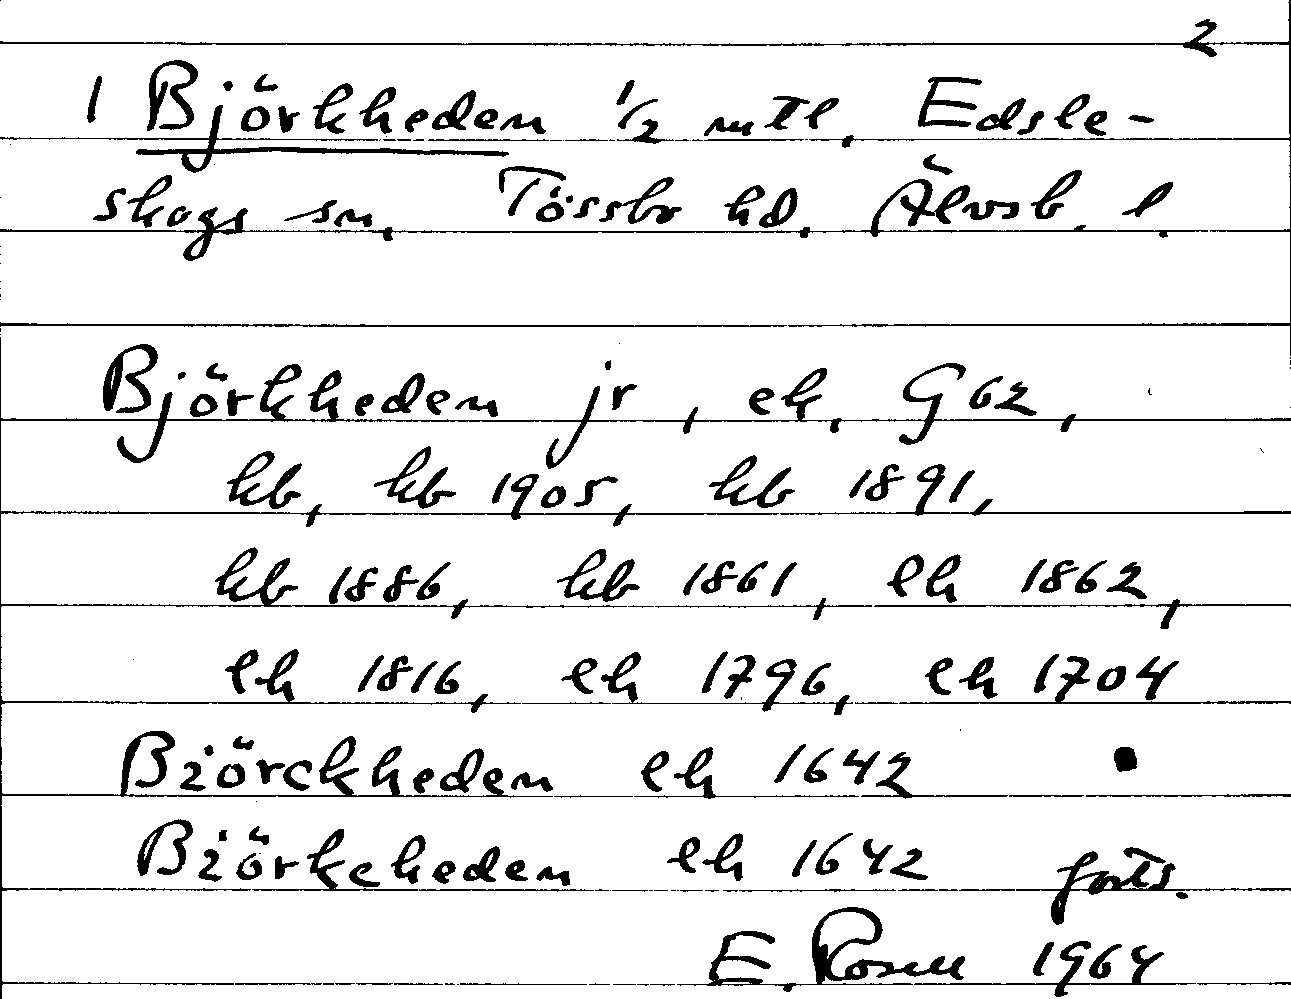 2
1 Björkheden 1/2 mtl. Edsle-
skogs sn. Tössbo hd. Älvsb. l.
Björkheden jr, ek. G 62,
kb, kb 1905, kb 1891,
kb 1886, kb 1861, lh 1862,
eh 1816, eh 1796, eh 1704
Biörckheden eh 1642
Biörkeheden eh 1642 forts.
E. Rosell 1964